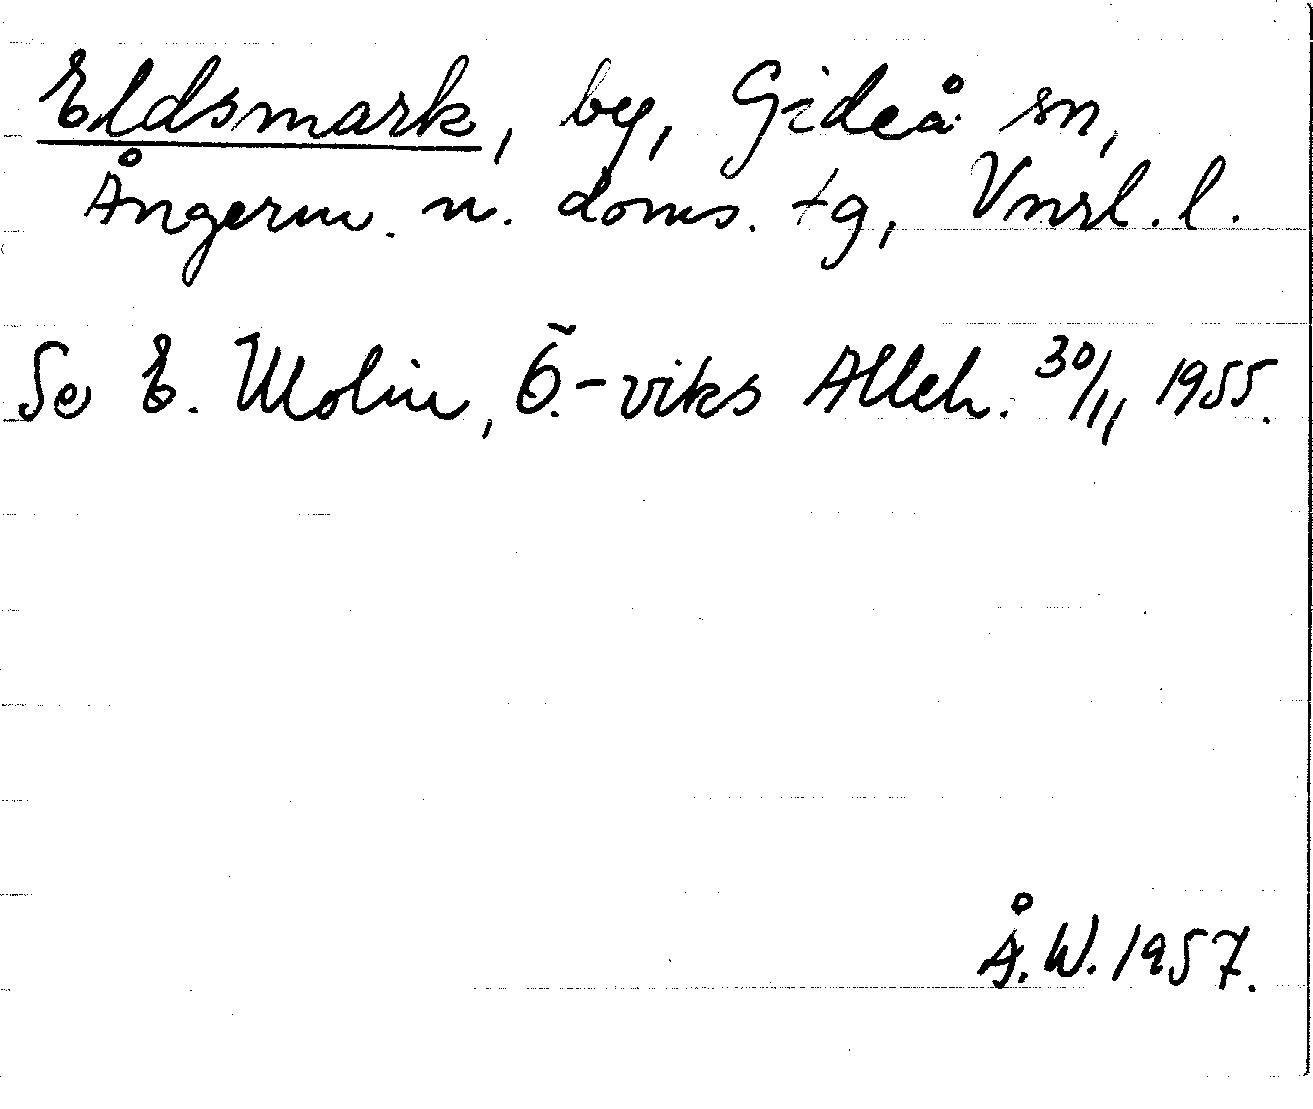 Eldsmark, by, Gideå sn,
Ångerm. n. doms. tg, Vnrl. l.
Se E. Molin, Ö.-viks Alleh. 30/11 1955.
Å. W. 1957.